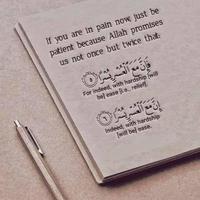 If you are in pain now, just be
patient because Allah promises
us not once but twice that:
فَإِنَّ مَعَ الْعُسْرِ يُسْرًا ٥
For indeed, with hardship [will
be] ease [i.e., relief].
إِنَّ مَعَ الْعُسْرِ يُسْرًا ٦
Indeed, with hardship
[will be] ease.